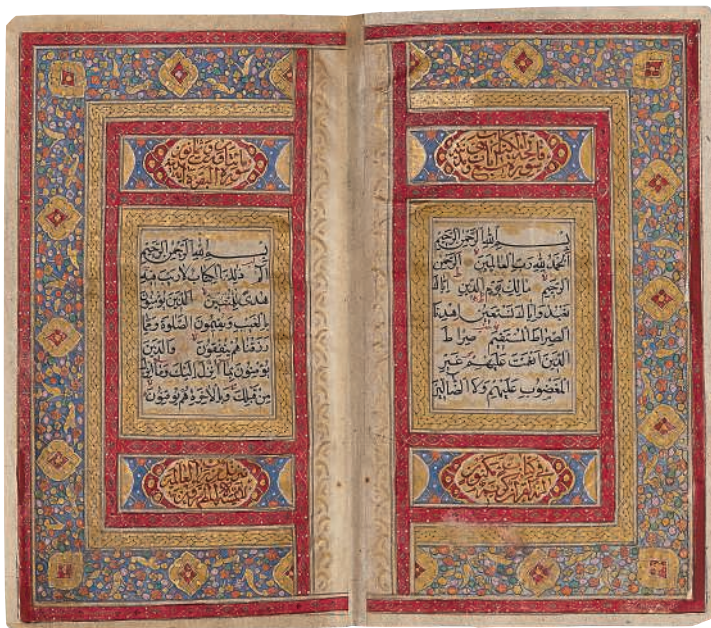 فاتحة الكتاب
سورة سبع
بِسْمِ اللهِ الرَّحْمنِ الرَّحِيمِ
اَلْحَمْدُ لِلّهِ رَبِّ الْعالَمِينَ الرَّحْمنِ
الرَّحِيمِ مالِكِ يَوْمِ الدِّينِ اِيَّاكَ
نَعْبُدُ وَاِيَّاكَ نَسْتَعِينُ اِهْدِنَا
الصِّراطَ الْمُسْتَقِيمَ صِراطَ
الَّذِينَ اَنْعَمْتَ عَلَيْهِمْ غَيْرِ
الْمَغْضُوبِ عَلَيْهِمْ وَلاَ الضَّالِّينَ
في كتاب مكنون
انه لقرآن كريم
سورة البقرة
بِسْمِ اللهِ الرَّحْمنِ الرَّحِيمِ
الم ذلِكَ الْكِتابُ لا رَيْبَ فِيهِ
هُدىً لِلْمُتَّقِينَ الَّذِينَ يُؤْمِنُونَ
بِالْغَيْبِ وَيُقِيمُونَ الصَّلوةَ وَمِمَّا
رَزَقْناهُمْ يُنْفِقُونَ وَالَّذِينَ
يُؤْمِنُونَ بِما اُنْزِلَ اِلَيْكَ وَما اُنْزِلَ
مِنْ قَبْلِكَ وَبِالْآخِرَةِ هُمْ يُوقِنُونَ
تنزيل من رب العالمين